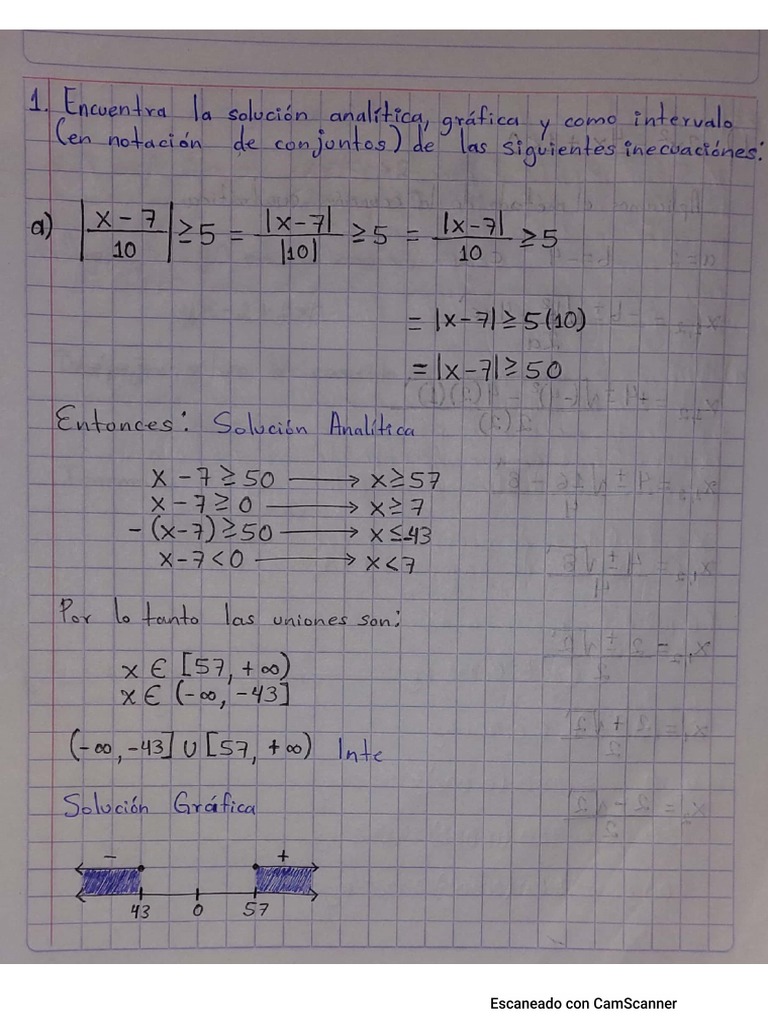 1. Encuentra la solución analítica, gráfica y como intervalo
(en notación de conjuntos) de las siguientes inecuaciónes:
a) |x-7/10| ≥ 5 = |x-7|/|10| ≥ 5 = |x-7|/10 ≥ 5
= |x-7| ≥ 5(10)
= |x-7| ≥ 50
Entonces: Solución Analítica
x - 7 ≥ 50 → x ≥ 57
x - 7 ≥ 0 → x ≥ 7
-(x-7) ≥ 50 → x ≤ -43
x - 7 < 0 → x < 7
Por lo tanto las uniones son:
x ∈ [57, +∞)
x ∈ (-∞, -43]
(-∞, -43] ∪ [57, +∞) Inte
Solución Gráfica
- +
43 0 57
Escaneado con CamScanner